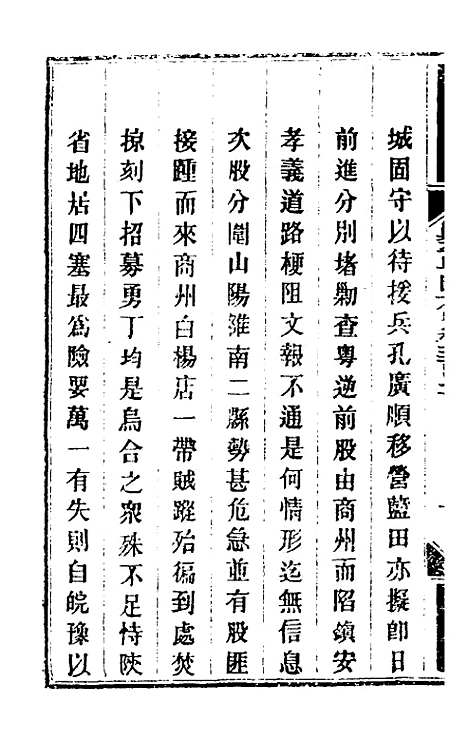 城固守以待援兵孔廣順移營藍田亦擬卽日
前進分別堵勦查粵逆前股由商州而陷鎮安
孝義道路梗阻文報不通是何情形迄無信息
次股分圍山陽雒南二縣勢甚危急並有股匪
接踵而來商州白楊店一帶賊蹤殆徧到處焚
掠刻下招募勇丁均是烏合之眾殊不足恃陝
省地居四塞最爲險要萬一有失則自皖豫以